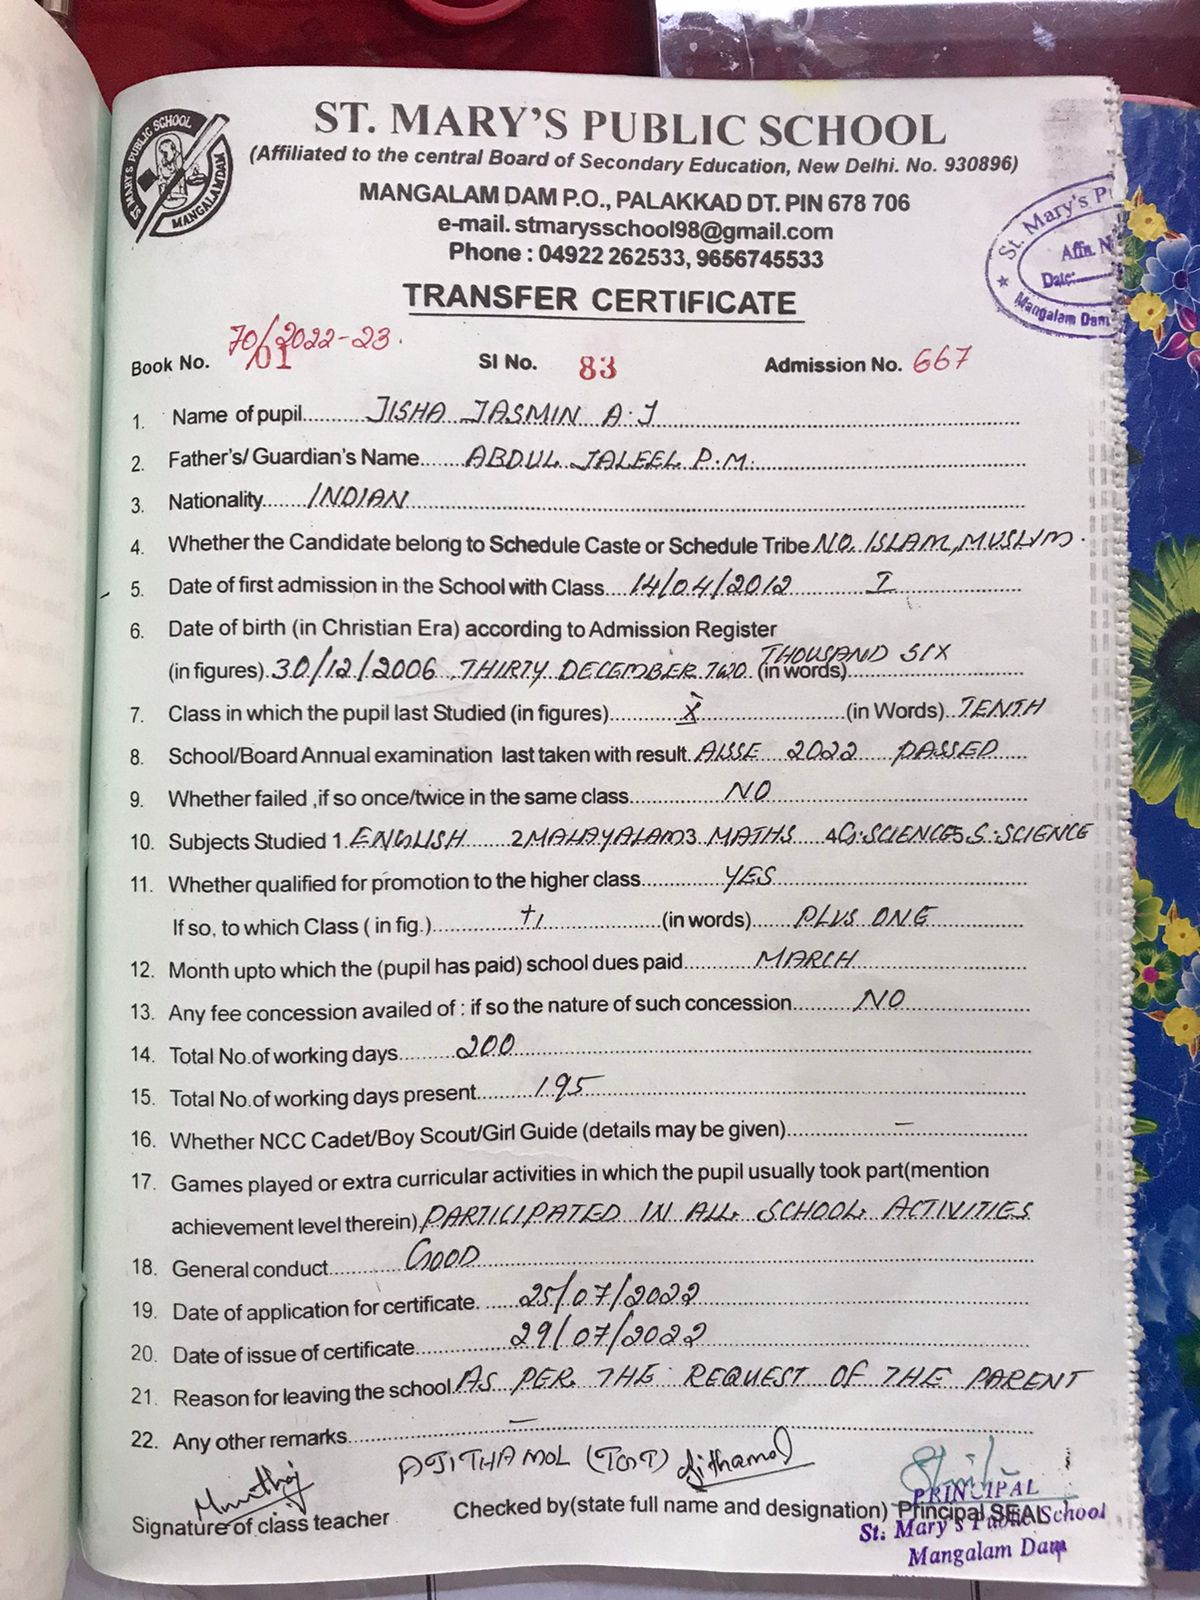 ST. MARY'S PUBLIC SCHOOL
MANGALAMDAM
ST. MARY'S PUBLIC SCHOOL
(Affiliated to the central Board of Secondary Education, New Delhi. No. 930896)
MANGALAM DAM P.O., PALAKKAD DT. PIN 678 706
e-mail. stmarysschool98@gmail.com
Phone : 04922 262533, 9656745533
St. Mary's P
Affn. N
Date:
Mangalam Dam
TRANSFER CERTIFICATE
70/2022-23.
Book No. 01 SI No. 83 Admission No. 667
1. Name of pupil JISHA JASMIN A.J
2. Father's/ Guardian's Name ABDUL JALEEL P.M.
3. Nationality INDIAN
4. Whether the Candidate belong to Schedule Caste or Schedule Tribe NO. ISLAM, MUSLIM.
5. Date of first admission in the School with Class 14/04/2012 I
6. Date of birth (in Christian Era) according to Admission Register
(in figures) 30/12/2006 THIRTY DECEMBER TWO (in words) THOUSAND SIX
7. Class in which the pupil last Studied (in figures) X (in Words) TENTH
8. School/Board Annual examination last taken with result AISSE 2022 PASSED
9. Whether failed ,if so once/twice in the same class NO
10. Subjects Studied 1. ENGLISH 2 MALAYALAM 3. MATHS 4 G.SCIENCE 5 S.SCIENCE
11. Whether qualified for promotion to the higher class YES
If so, to which Class ( in fig.) +1 (in words) PLUS ONE
12. Month upto which the (pupil has paid) school dues paid MARCH
13. Any fee concession availed of : if so the nature of such concession NO
14. Total No.of working days 200
15. Total No.of working days present 195
16. Whether NCC Cadet/Boy Scout/Girl Guide (details may be given) –
17. Games played or extra curricular activities in which the pupil usually took part(mention
achievement level therein) PARTICIPATED IN ALL SCHOOL ACTIVITIES
18. General conduct GOOD
19. Date of application for certificate. 25/07/2022
20. Date of issue of certificate 29/07/2022
21. Reason for leaving the school AS PER THE REQUEST OF THE PARENT
22. Any other remarks –
AJITHAMOL (TGT) Ajithamol
Signature of class teacher Checked by(state full name and designation) Principal SEAL
PRINCIPAL
St. Mary's Public School
Mangalam Dam